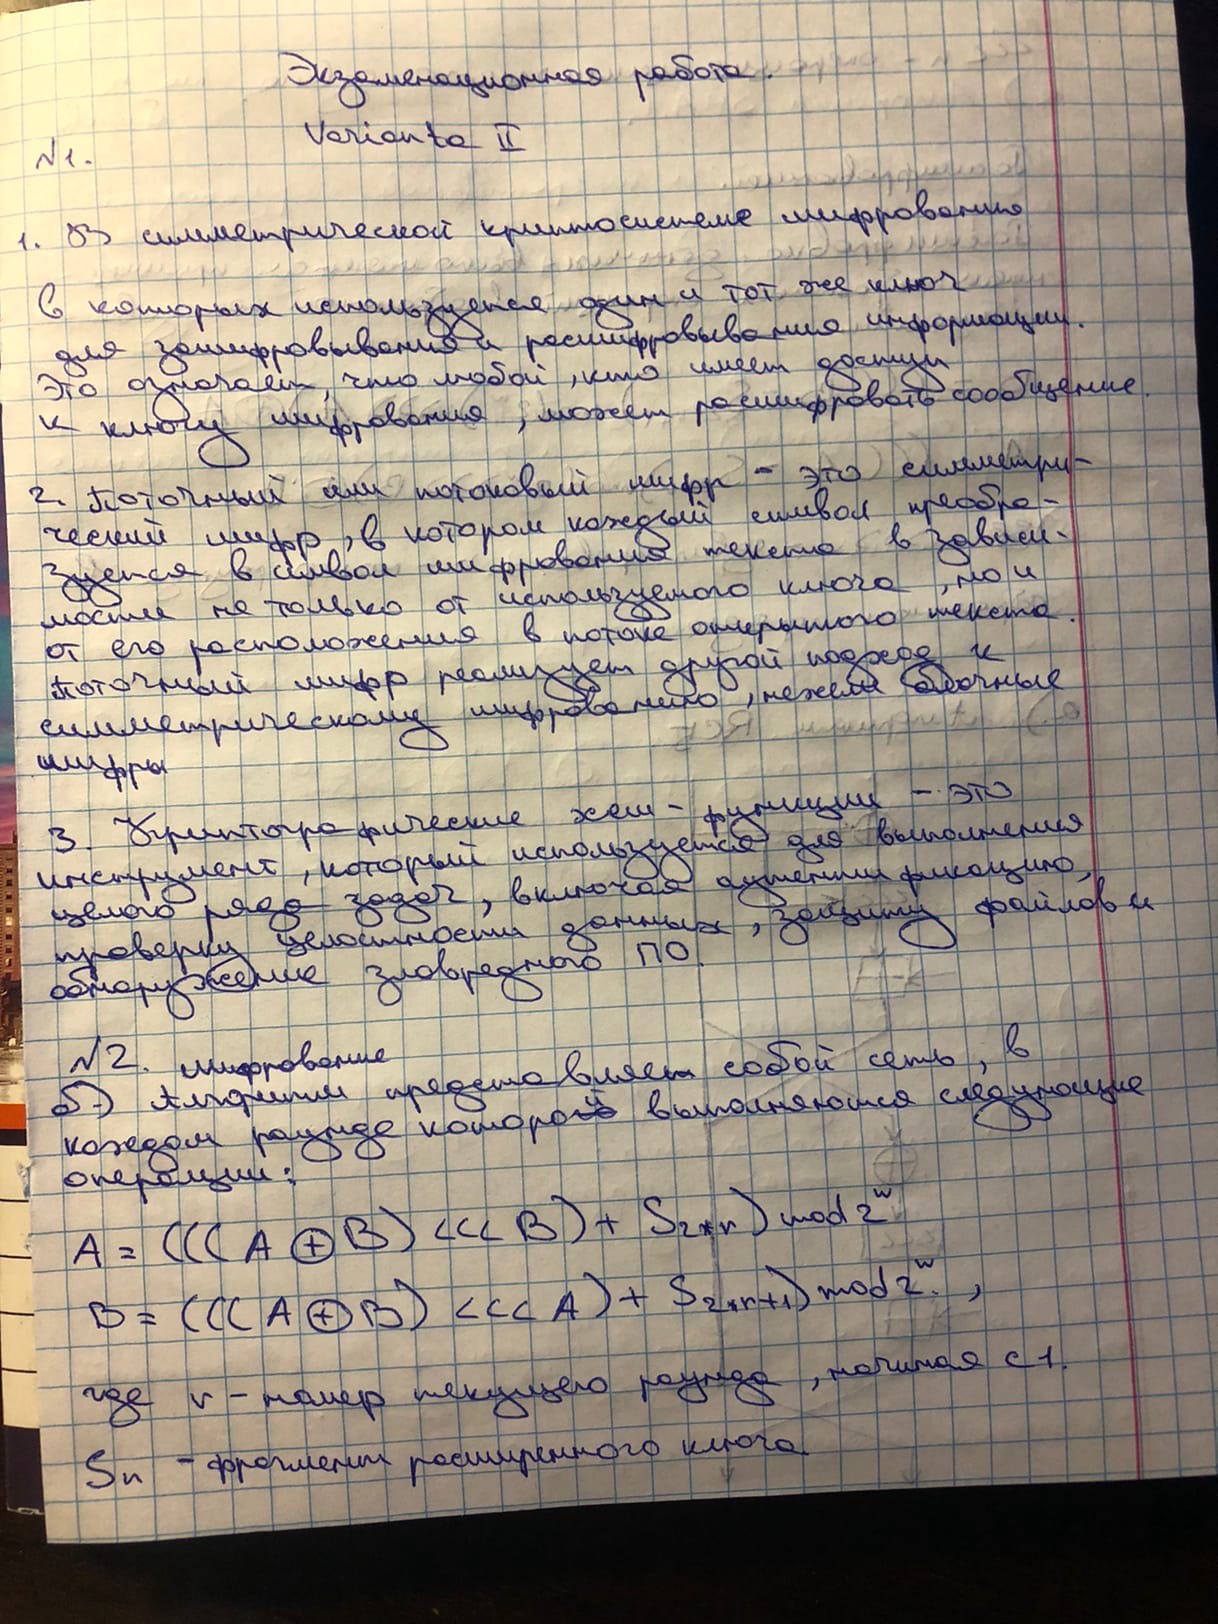 Экзаменационная работа.
Varianta II
№1.
1. В симметрической криптосистеме шифрования
в которых используется один и тот же ключ
для зашифровывания и расшифровывания информации.
Это означает, что любой, кто имеет доступ
к ключу шифрования, может расшифровать сообщение.
2. Поточный или потоковый шифр - это симметри-
ческий шифр, в котором каждый символ преобра-
зуется в символ шифрования текста в зависи-
мости не только от используемого ключа, но и
от его расположения в потоке открытого текста.
Поточный шифр реализует другой подход к
симметрическому шифрованию, нежели блочные
шифры
3. Криптографические хеш-функции - это
инструмент, который используется для выполнения
целого ряда задач, включая аутентификацию,
проверку целостности данных, защиту файлов и
обнаружение зловредного ПО.
№2. шифрование
б.) Алгоритм представляет собой сеть, в
каждом раунде которой выполняются следующие
операции:
A = (((A ⊕ B) <<< B) + S2*r) mod 2^w
B = (((A ⊕ B) <<< A) + S2*r+1) mod 2^w,
где r - номер текущего раунда, начиная с 1.
Sn - фрагмент расширенного ключа